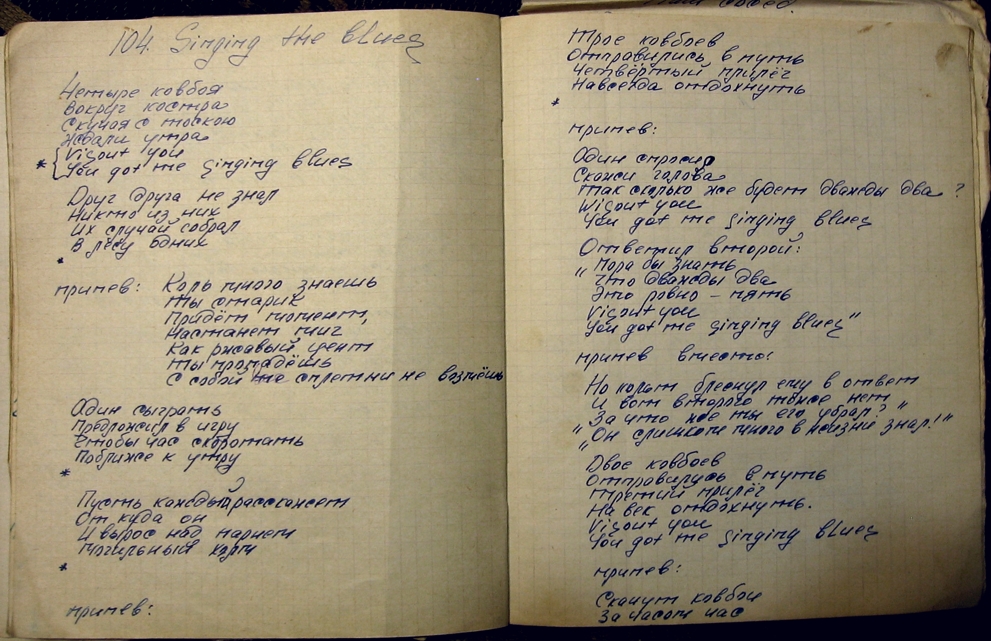 104. Singing the blues
Четыре ковбоя
Вокруг костра
Скучая с тоскою
Ждали утра
* { Visout you
You got me singing blues
Друг друга не знал
Никто из них
Их случай собрал
В лесу одних
*
припев: Коль много знаешь
Ты старик
Придёт момент,
Настанет миг
Как ржавый цент
Ты пропадёшь
С собой те сплетни не возмёшь
Один сыграть
Предложил в игру
Чтобы час скоротать
Поближе к утру
*
Пусть каждый расскажет
От куда он
И вырос над парнем
Могильный холм
*
припев:
Трое ковбоев
Отправились в путь
Четвёртый прилёг
Навсегда отдохнуть
*
припев:
Один спросил
Скажи голова
Так сколько же будет дважды два ?
Visout you
You got me singing blues
Ответил второй:
„Пора бы знать
Что дважды два
Это ровно – пять
Visout you
You got me singing blues"
припев вместо:
Но кольт блеснул ему в ответ
И вот второго тоже нет
„За что же ты его убрал?"
„Он слишком много в жизни знал!"
Двое ковбоев
Отправились в путь
Третий прилёг
На век отдохнуть.
Visout you
You got me singing blues
припев:
Скачут ковбои
За часом час